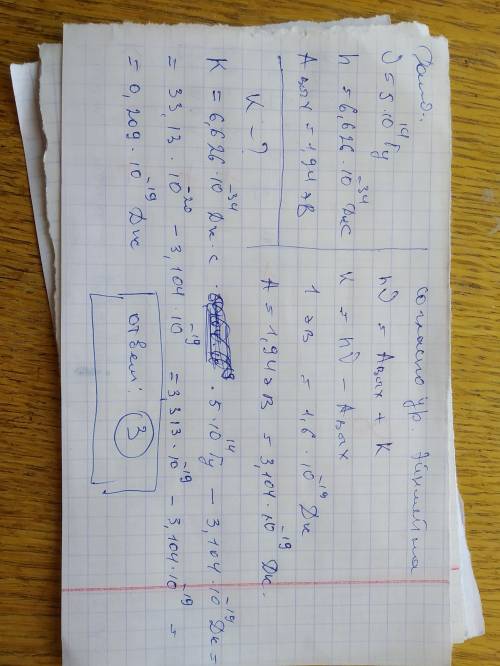 Дано:
ν = 5·10¹⁴ Гц
h = 6,626·10⁻³⁴ Дж·с
Aвых = 1,94 эВ
K - ?
согласно ур. Эйнштейна
hν = Aвых + K
K = hν - Aвых
1 эВ = 1,6·10⁻¹⁹ Дж
A = 1,94 эВ = 3,104·10⁻¹⁹ Дж.
K = 6,626·10⁻³⁴ Дж·с · 5·10¹⁴ Гц - 3,104·10⁻¹⁹ Дж =
= 33,13·10⁻²⁰ - 3,104·10⁻¹⁹ = 3313·10⁻¹⁹ - 3,104·10⁻¹⁹ =
= 0,209·10⁻¹⁹ Дж
ответ: 3